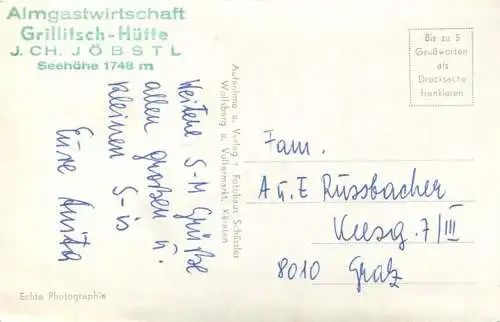 Almgastwirtschaft
Grillitsch-Hütte
J. CH. JÖBSTL
Seehöhe 1748 m
Weitere S-M Grüße
allen großen u.
kleinen S-is
Eure Anita
Aufnahme u. Verlag: Fotohaus Schüssler
Wolfsberg u. Völkermarkt, Kärnten
Bis zu 5
Grußworten
als
Drucksache
frankieren
Fam.
A u. E Russbacher
Keesg. 7/III
8010 Graz
Echte Photographie